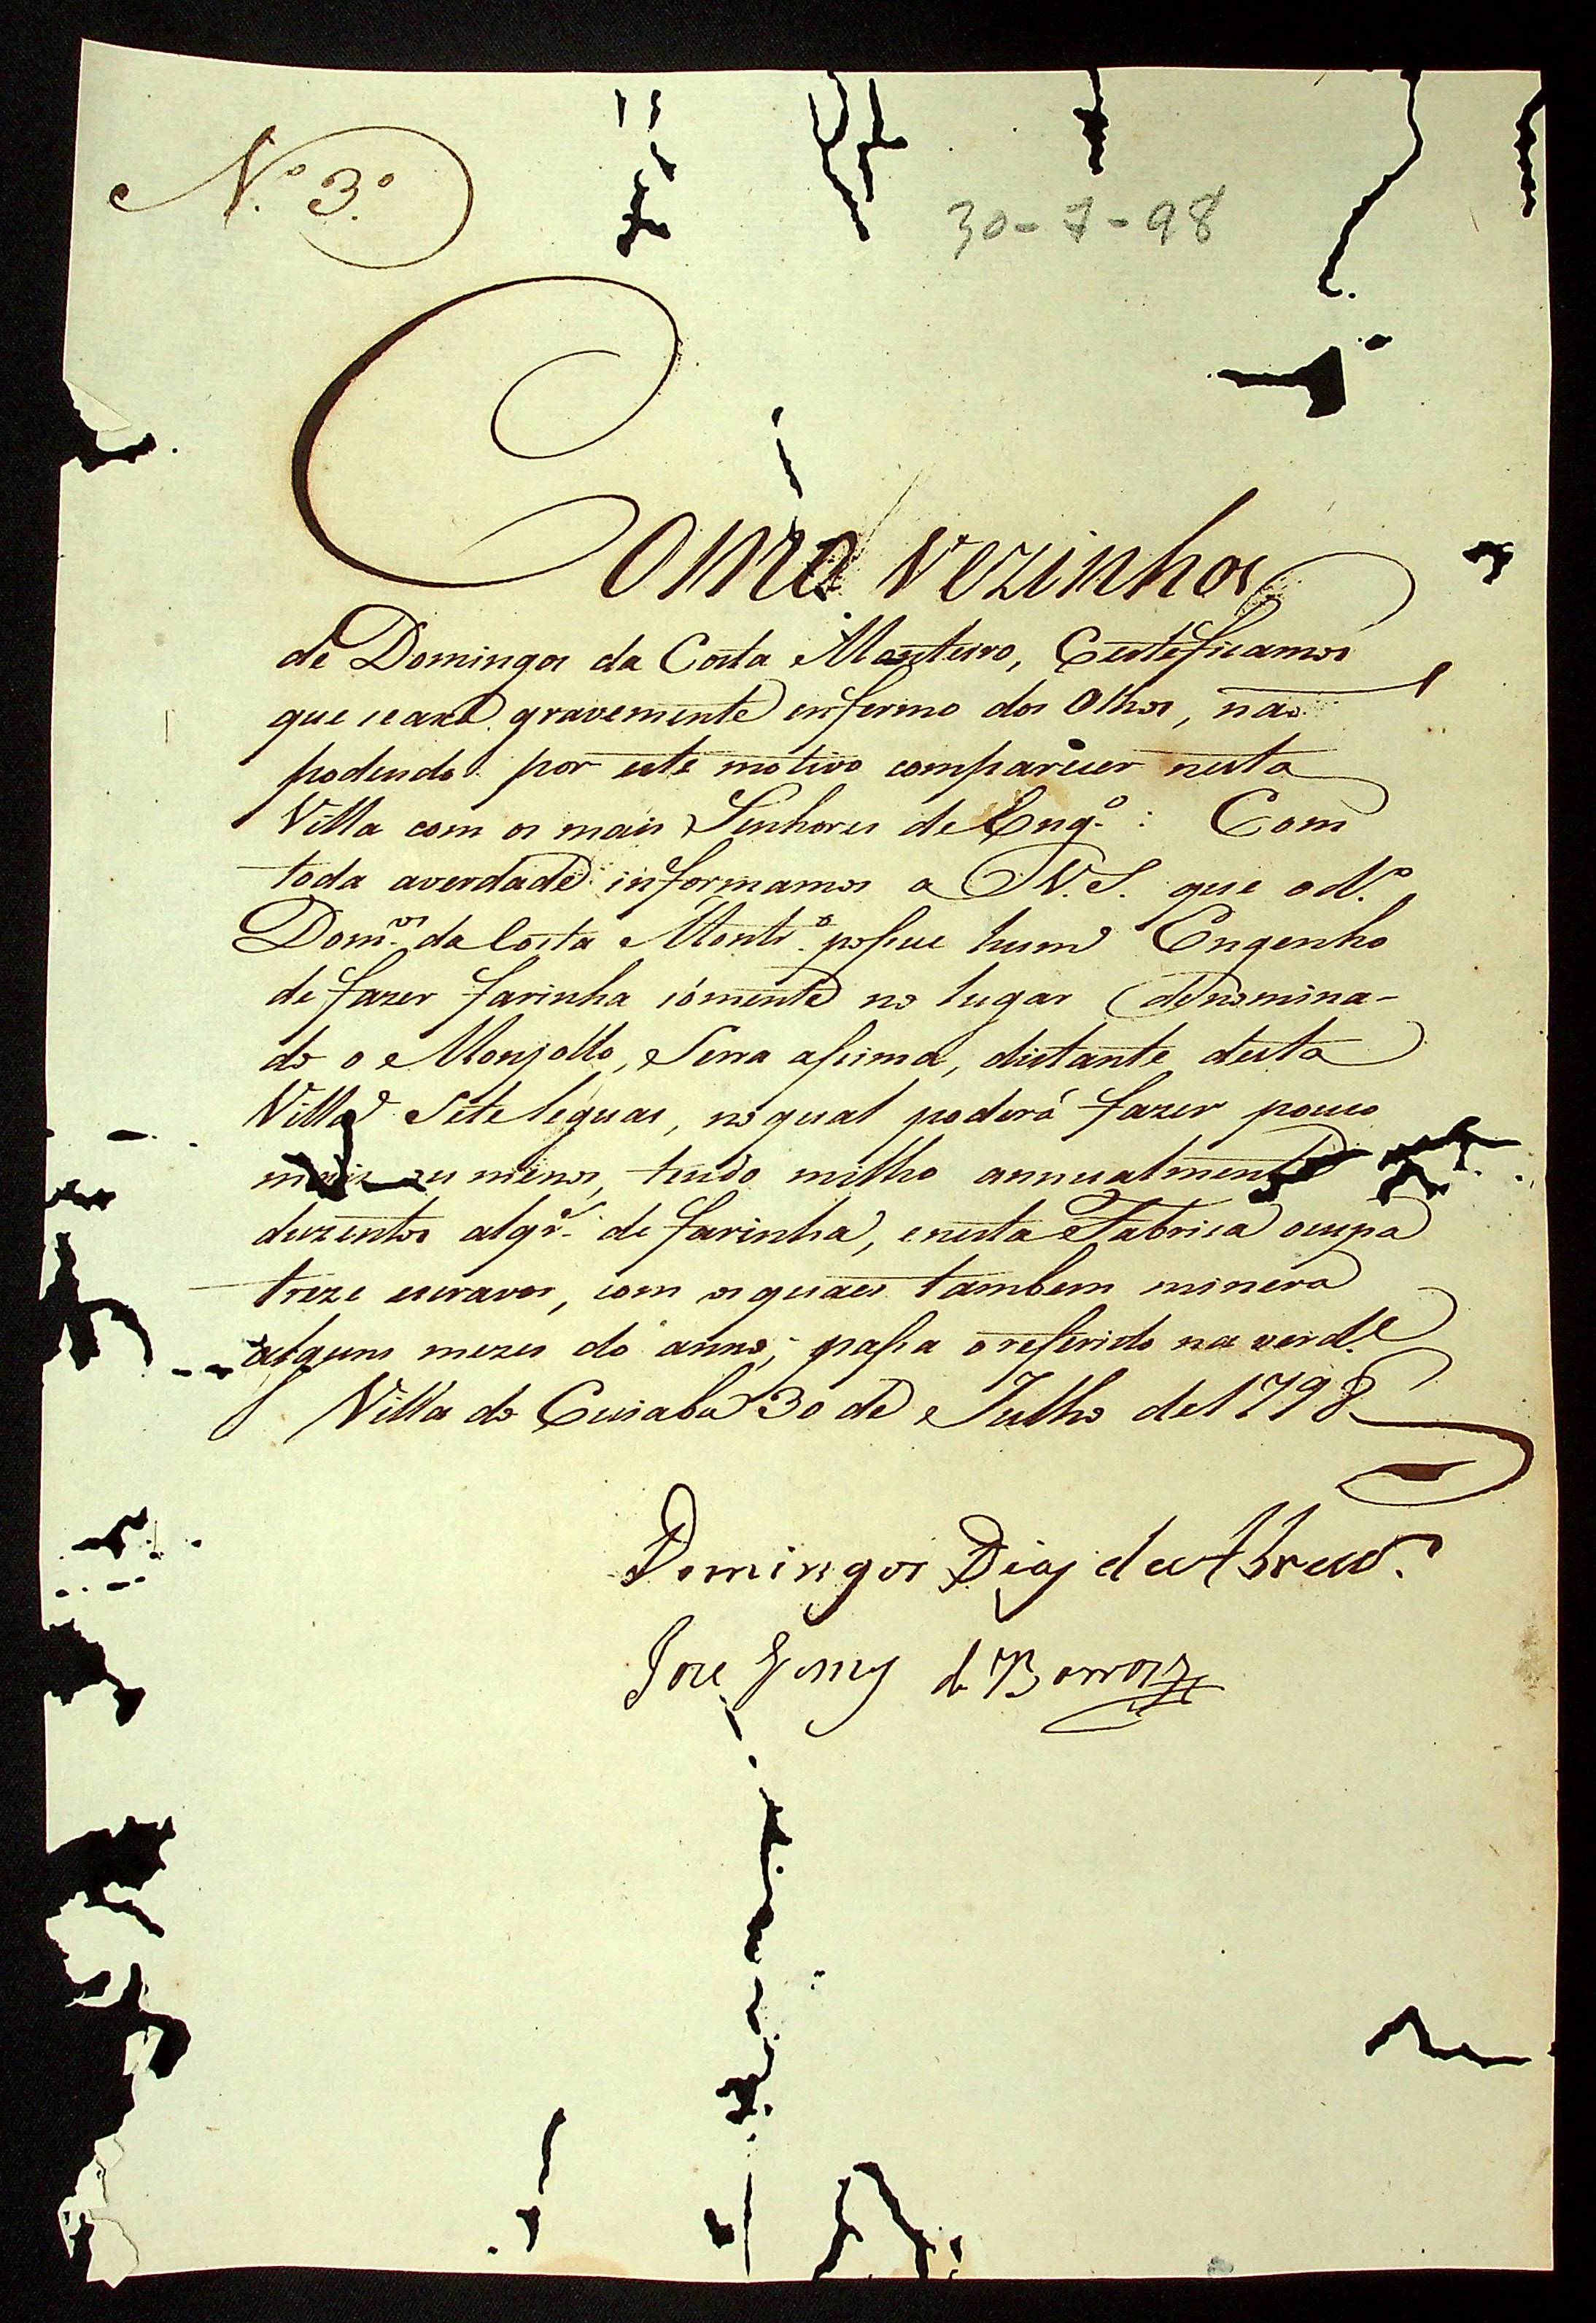 N.º 3.º
30-7-98
Como vezinhos
de Domingos da Costa Monteiro, Certeficamos
que se axa gravemente enfermo dos Olhos, não
podendo por este motivo comparecer nesta
Villa com os mais Senhores de Eng.º : Com
toda averdade informamos a V. S. que o d.º
Dom.os da Costa Montr.º possue hum Engenho
de fazer farinha sómente no lugar denomina-
do o Monjollo, Serra assima, distante desta
Villa Sete leguas, no qual poderá fazer pouco
mais ou menos, tendo milho annualmente
duzentos alqr.s de farinha, e nesta Fabrica ocupa
treze escravos, com os quaes tambem minera
alguns mezes do anno; passa o referido na verd.e
Villa do Cuiaba 30 de Julho de 1798
Domingos Dias de Abreu.
Joze Gomes de Barros